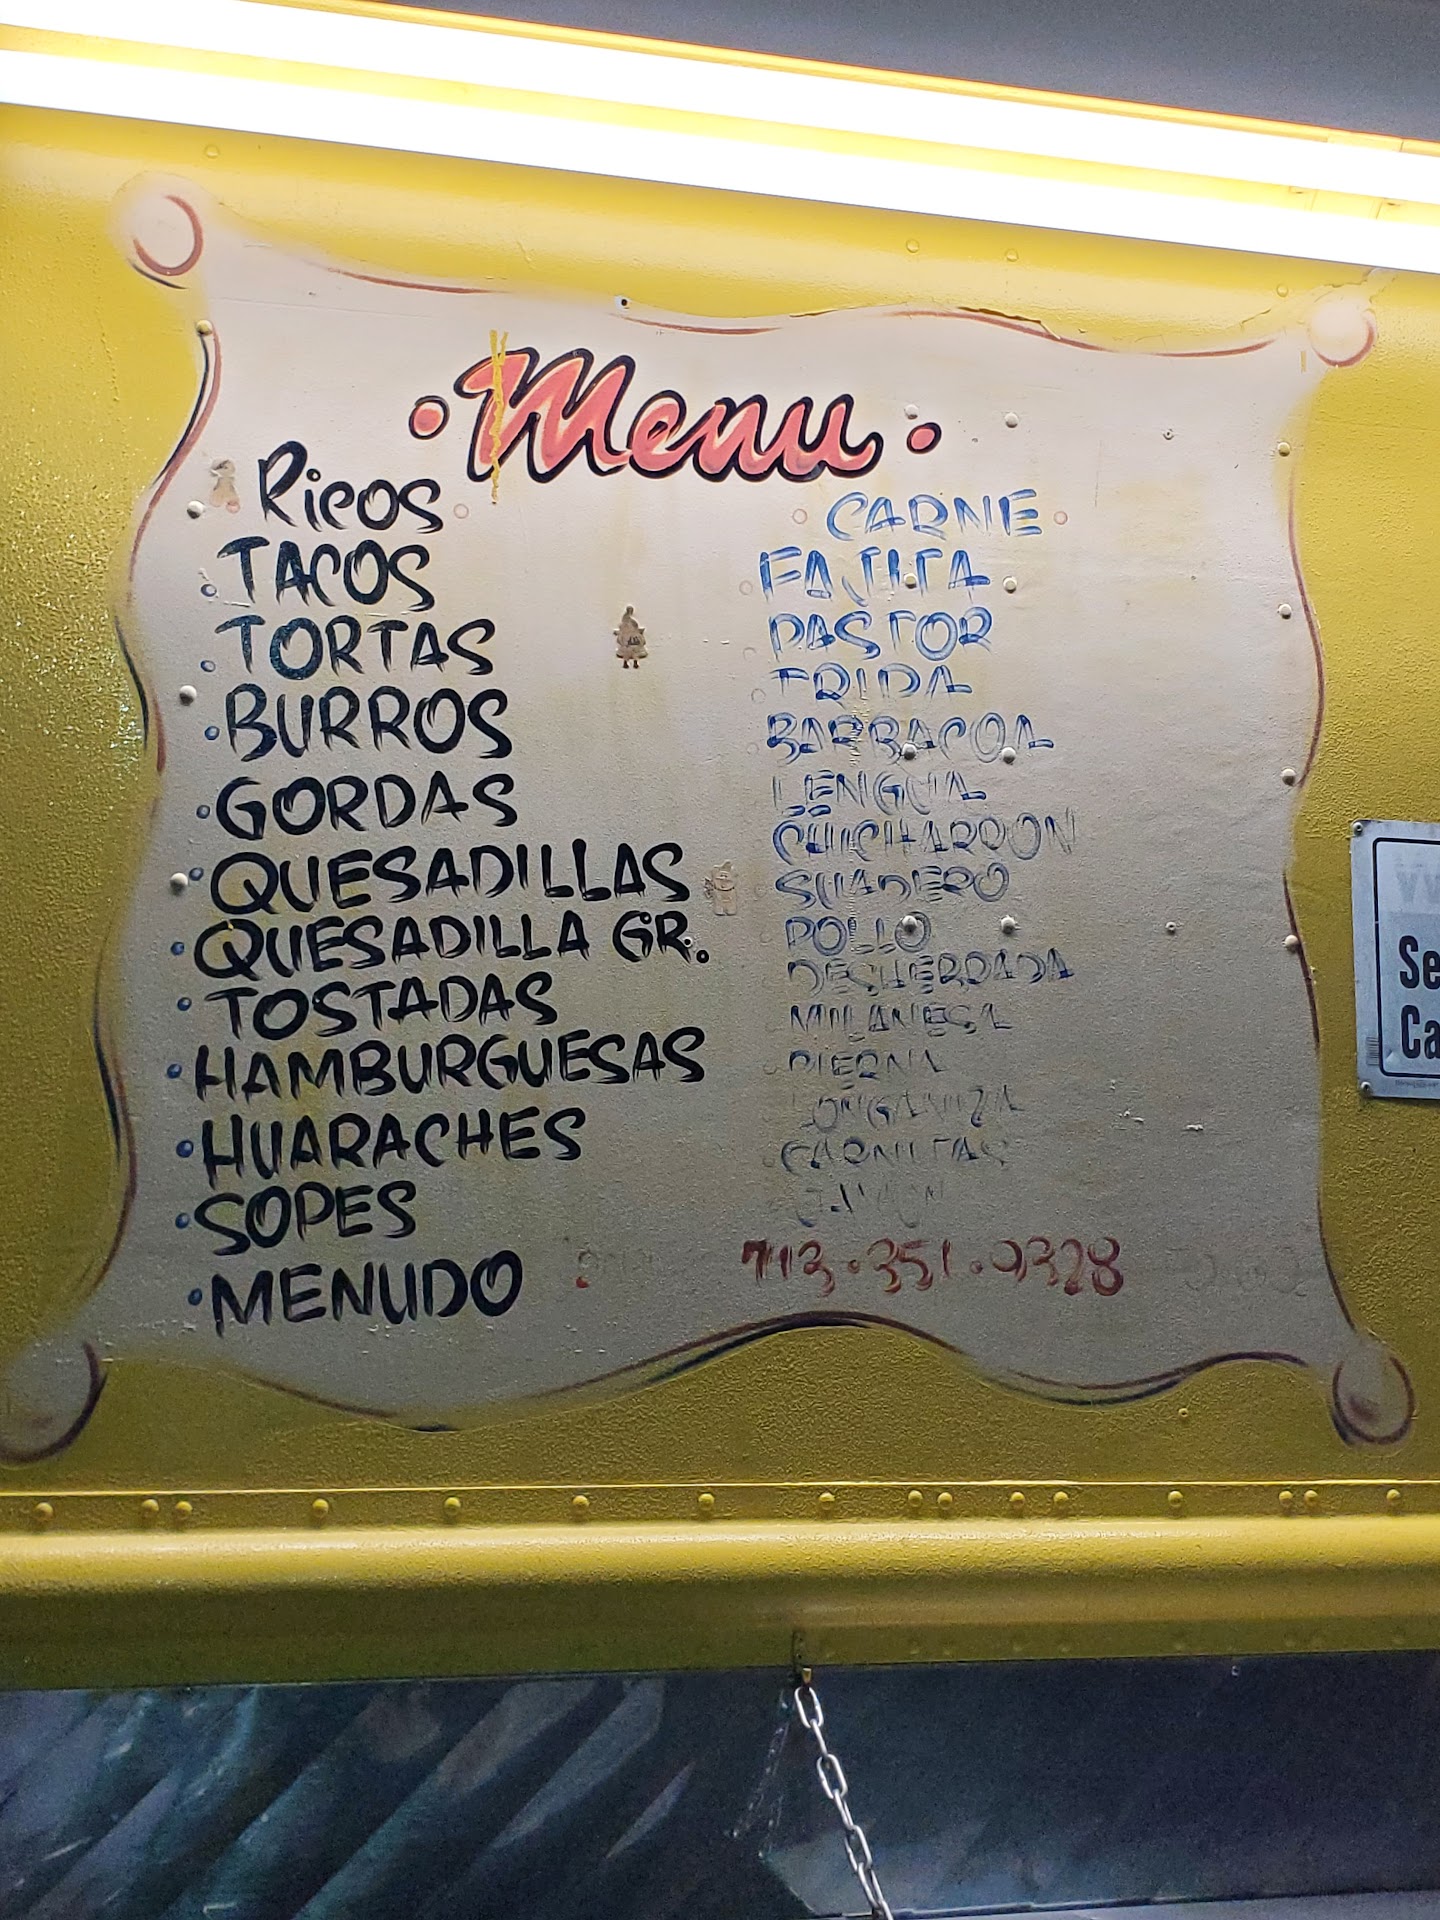 Menu
Ricos
TACOS
TORTAS
BURROS
GORDAS
QUESADILLAS
QUESADILLA GR.
TOSTADAS
HAMBURGUESAS
HUARACHES
SOPES
MENUDO
CARNE
FAJITA
PASTOR
TRIPA
BARBACOA
LENGUA
CHICHARRON
SUADERO
POLLO
DESHEBRADA
MILANESA
PIERNA
LONGANIZA
CARNITAS
JAMON
713.351.9328
Se
Ca